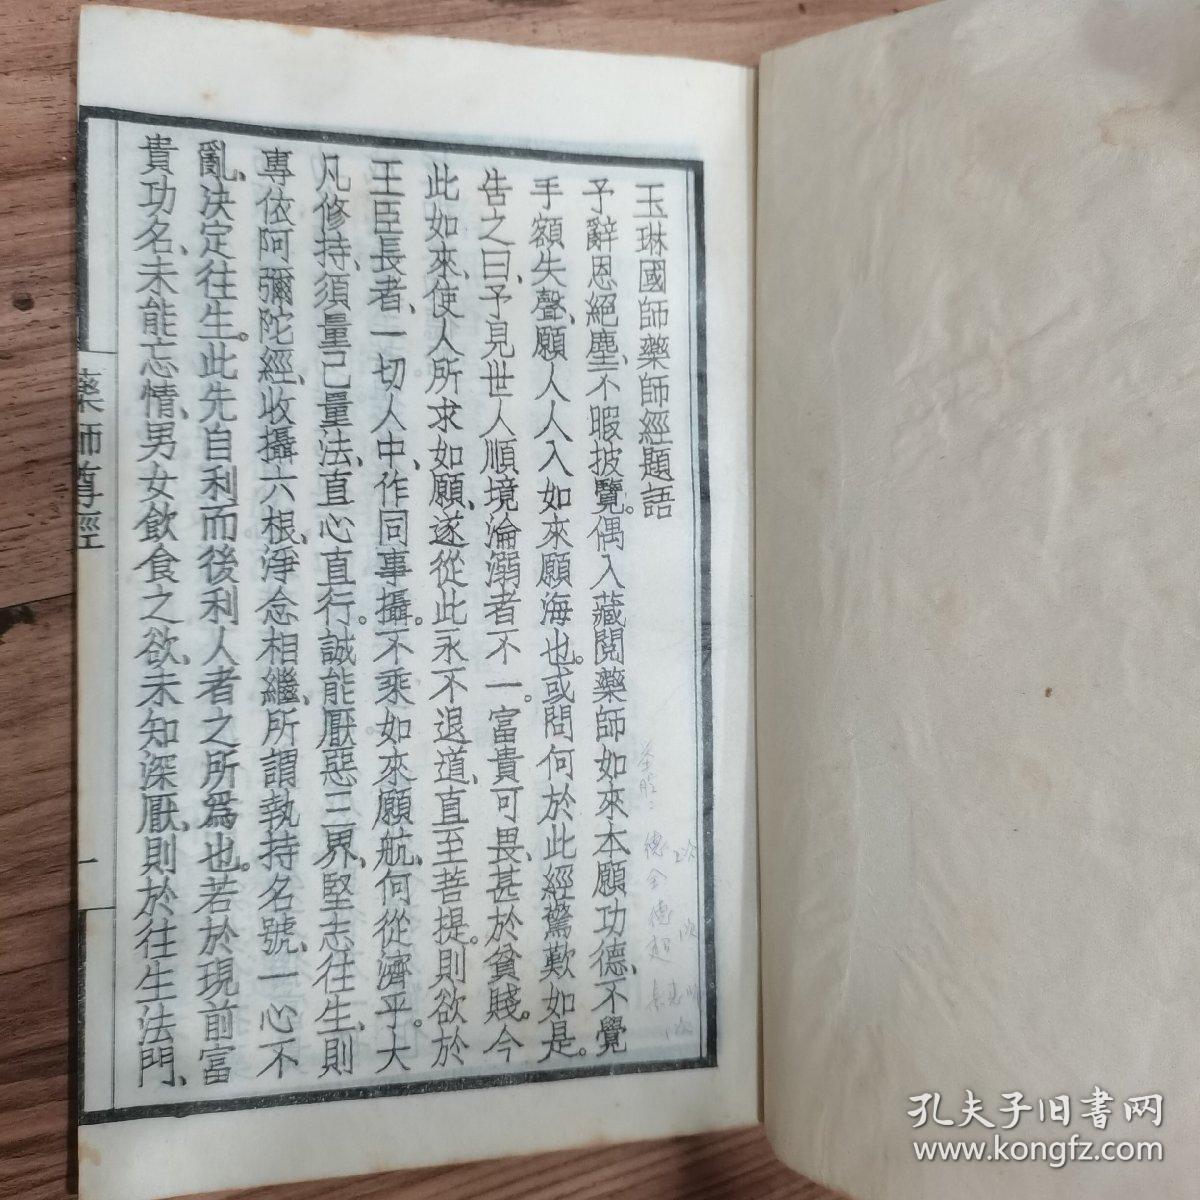 玉琳國師藥師經題語
予辭恩絕塵、不暇披覽。偶入藏閱藥師如來本願功德、不覺
手額失聲、願人人入如來願海也。或問何於此經驚歎如是。
告之曰、予見世人順境淪溺者不一。富貴可畏、甚於貧賤。今
此如來、使人所求如願、遂從此永不退道、直至菩提。則欲於
王臣長者、一切人中、作同事攝。不乘如來願航、何從濟乎。大
凡修持、須量己量法、直心直行。誠能厭惡三界、堅志往生、則
專依阿彌陀經、收攝六根、淨念相繼、所謂執持名號、一心不
亂、決定往生。此先自利而後利人者之所為也。若於現前富
貴功名、未能忘情、男女飲食之欲、未知深厭、則於往生法門、
藥師尊經
一
孔夫子旧书网
www.kongfz.com